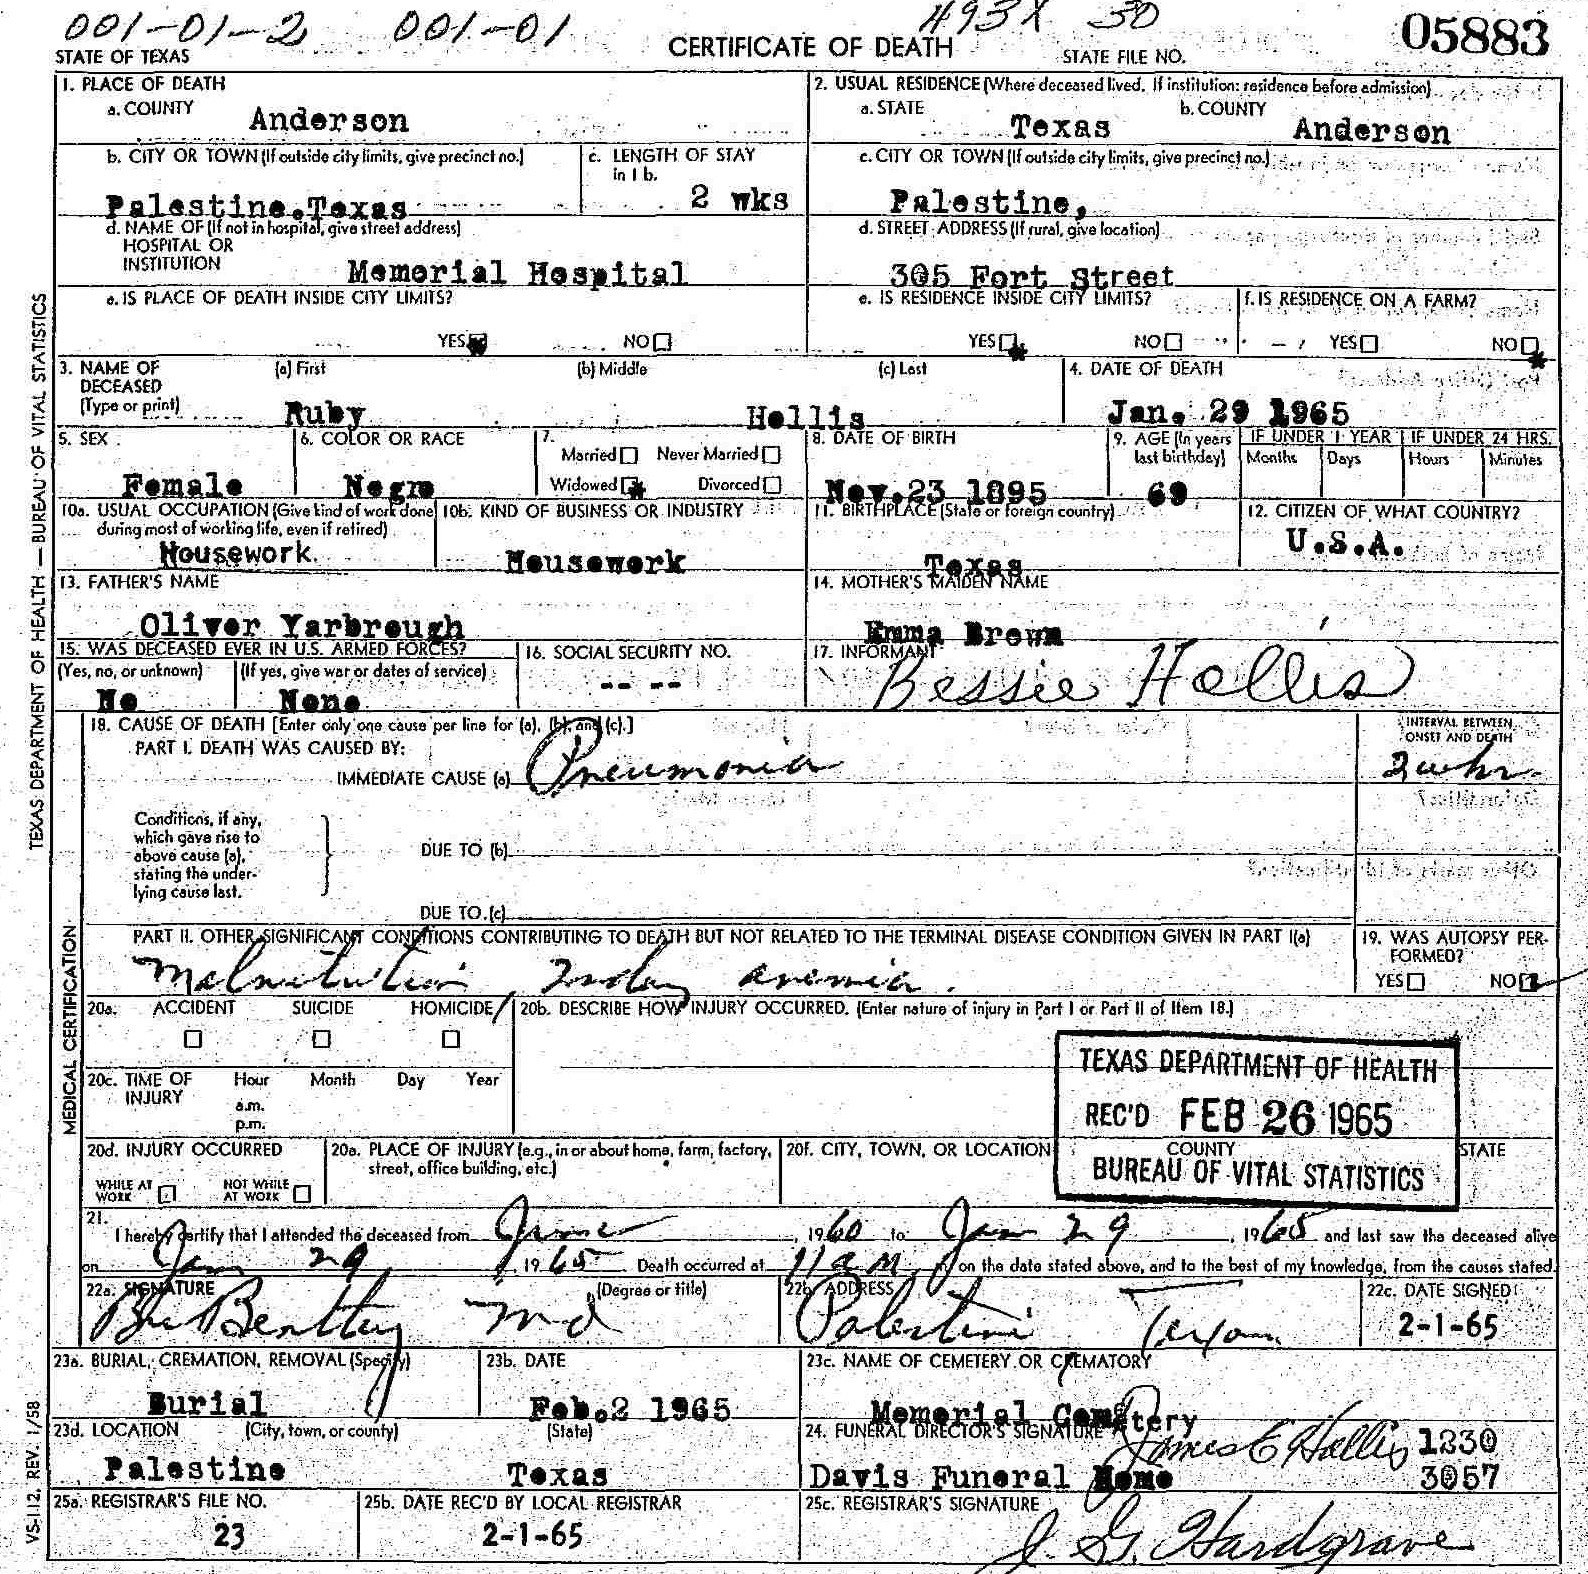 001-01-2 001-01 493X 30 05883
STATE OF TEXAS CERTIFICATE OF DEATH STATE FILE NO.
1. PLACE OF DEATH
a. COUNTY Anderson
2. USUAL RESIDENCE (Where deceased lived. If institution: residence before admission)
a. STATE Texas b. COUNTY Anderson
b. CITY OR TOWN (If outside city limits, give precinct no.) Palestine.Texas
c. LENGTH OF STAY in 1 b. 2 wks
c. CITY OR TOWN (If outside city limits, give precinct no.) Palestine,
d. NAME OF (If not in hospital, give street address)
HOSPITAL OR
INSTITUTION Memorial Hospital
d. STREET ADDRESS (If rural, give location)
305 Fort Street
e. IS PLACE OF DEATH INSIDE CITY LIMITS?
YES NO
e. IS RESIDENCE INSIDE CITY LIMITS?
YES NO
f. IS RESIDENCE ON A FARM?
YES NO
3. NAME OF DECEASED (Type or print)
(a) First (b) Middle (c) Last
Ruby Hollis
4. DATE OF DEATH
Jan. 29 1965
5. SEX
Female
6. COLOR OR RACE
Negro
7. Married Never Married
Widowed Divorced
8. DATE OF BIRTH
Nov.23 1895
9. AGE (In years last birthday)
69
IF UNDER 1 YEAR IF UNDER 24 HRS.
Months Days Hours Minutes
10a. USUAL OCCUPATION (Give kind of work done during most of working life, even if retired)
Housework.
10b. KIND OF BUSINESS OR INDUSTRY
Housework
11. BIRTHPLACE (State or foreign country)
Texas
12. CITIZEN OF WHAT COUNTRY?
U.S.A.
13. FATHER'S NAME
Oliver Yarbrough
14. MOTHER'S MAIDEN NAME
Emma Brown
15. WAS DECEASED EVER IN U.S. ARMED FORCES?
(Yes, no, or unknown) (If yes, give war or dates of service)
No None
16. SOCIAL SECURITY NO.
-- --
17. INFORMANT
Bessie Hollis
18. CAUSE OF DEATH [Enter only one cause per line for (a), (b), and (c).]
PART I. DEATH WAS CAUSED BY:
IMMEDIATE CAUSE (a) Pneumonia
INTERVAL BETWEEN
ONSET AND DEATH
Conditions, if any,
which gave rise to
above cause (a),
stating the under-
lying cause last.
DUE TO (b)
DUE TO (c)
PART II. OTHER SIGNIFICANT CONDITIONS CONTRIBUTING TO DEATH BUT NOT RELATED TO THE TERMINAL DISEASE CONDITION GIVEN IN PART I(a)
Malnutrition, anemia.
19. WAS AUTOPSY PER-
FORMED?
YES NO
20a. ACCIDENT SUICIDE HOMICIDE
20b. DESCRIBE HOW INJURY OCCURRED. (Enter nature of injury in Part I or Part II of Item 18.)
20c. TIME OF INJURY Hour Month Day Year
a.m.
p.m.
TEXAS DEPARTMENT OF HEALTH
REC'D FEB 26 1965
BUREAU OF VITAL STATISTICS
20d. INJURY OCCURRED
WHILE AT WORK NOT WHILE AT WORK
20e. PLACE OF INJURY (e.g., in or about home, farm, factory, street, office building, etc.)
20f. CITY, TOWN, OR LOCATION COUNTY STATE
21.
I hereby certify that I attended the deceased from June, 1960 to Jan 29, 1965 and last saw the deceased alive
on Jan 29, 1965. Death occurred at 11 a m, on the date stated above, and to the best of my knowledge, from the causes stated.
22a. SIGNATURE (Degree or title)
MD
22b. ADDRESS
Palestine Texas
22c. DATE SIGNED
2-1-65
23a. BURIAL, CREMATION, REMOVAL (Specify)
Burial
23b. DATE
Feb.2 1965
23c. NAME OF CEMETERY OR CREMATORY
Memorial Cemetery
23d. LOCATION (City, town, or county) (State)
Palestine Texas
24. FUNERAL DIRECTOR'S SIGNATURE James E Hollis 1230
Davis Funeral Home 3057
25a. REGISTRAR'S FILE NO.
23
25b. DATE REC'D BY LOCAL REGISTRAR
2-1-65
25c. REGISTRAR'S SIGNATURE
J. G. Hardgrave
TEXAS DEPARTMENT OF HEALTH — BUREAU OF VITAL STATISTICS
MEDICAL CERTIFICATION
VS-112, REV. 1/58